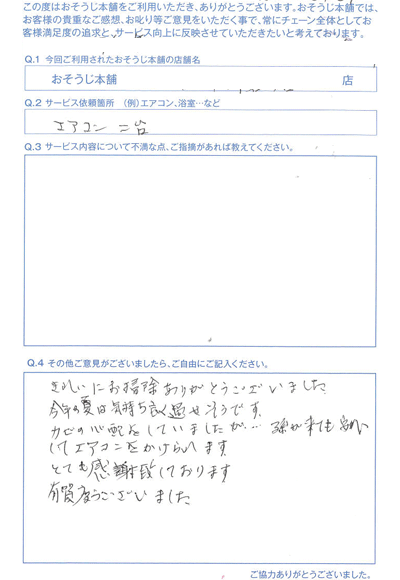 この度はおそうじ本舗をご利用いただき、ありがとうございます。おそうじ本舗では、
お客様の貴重なご感想、お叱り等ご意見をいただく事で、常にチェーン全体としてお
客様満足度の追求と、サービス向上に反映させていただきたいと考えております。
Q.1 今回ご利用されたおそうじ本舗の店舗名
おそうじ本舗 店
Q.2 サービス依頼箇所 (例)エアコン、浴室…など
エアコン 二台
Q.3 サービス内容について不満な点、ご指摘があれば教えてください。
Q.4 その他ご意見がございましたら、ご自由にご記入ください。
きれいにお掃除ありがとうございました
今年の夏は気持ち良く過せそうです
カビの心配をしていましたが… 孫が来ても安心
してエアコンをかけられます
とても感謝致しております
有難うございました
ご協力ありがとうございました。